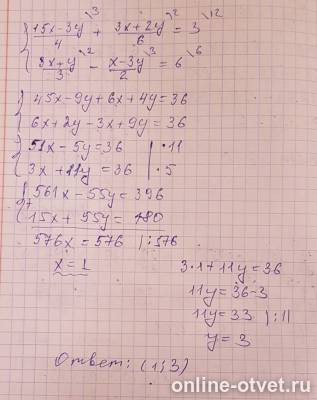 (15x-3y)/4 \3 + (3x+2y)/6 \2 = 3 \12
(3x+y)/3 \2 - (x-3y)/2 \3 = 6 \6
45x-9y+6x+4y=36
6x+2y-3x+9y=36
51x-5y=36 | ·11
3x+11y=36 | ·5
561x-55y=396
15x+55y=180
576x=576 |:576
x=1
3·1+11y=36
11y=36-3
11y=33 |:11
y=3
Ответ: (1;3)
online-otvet.ru